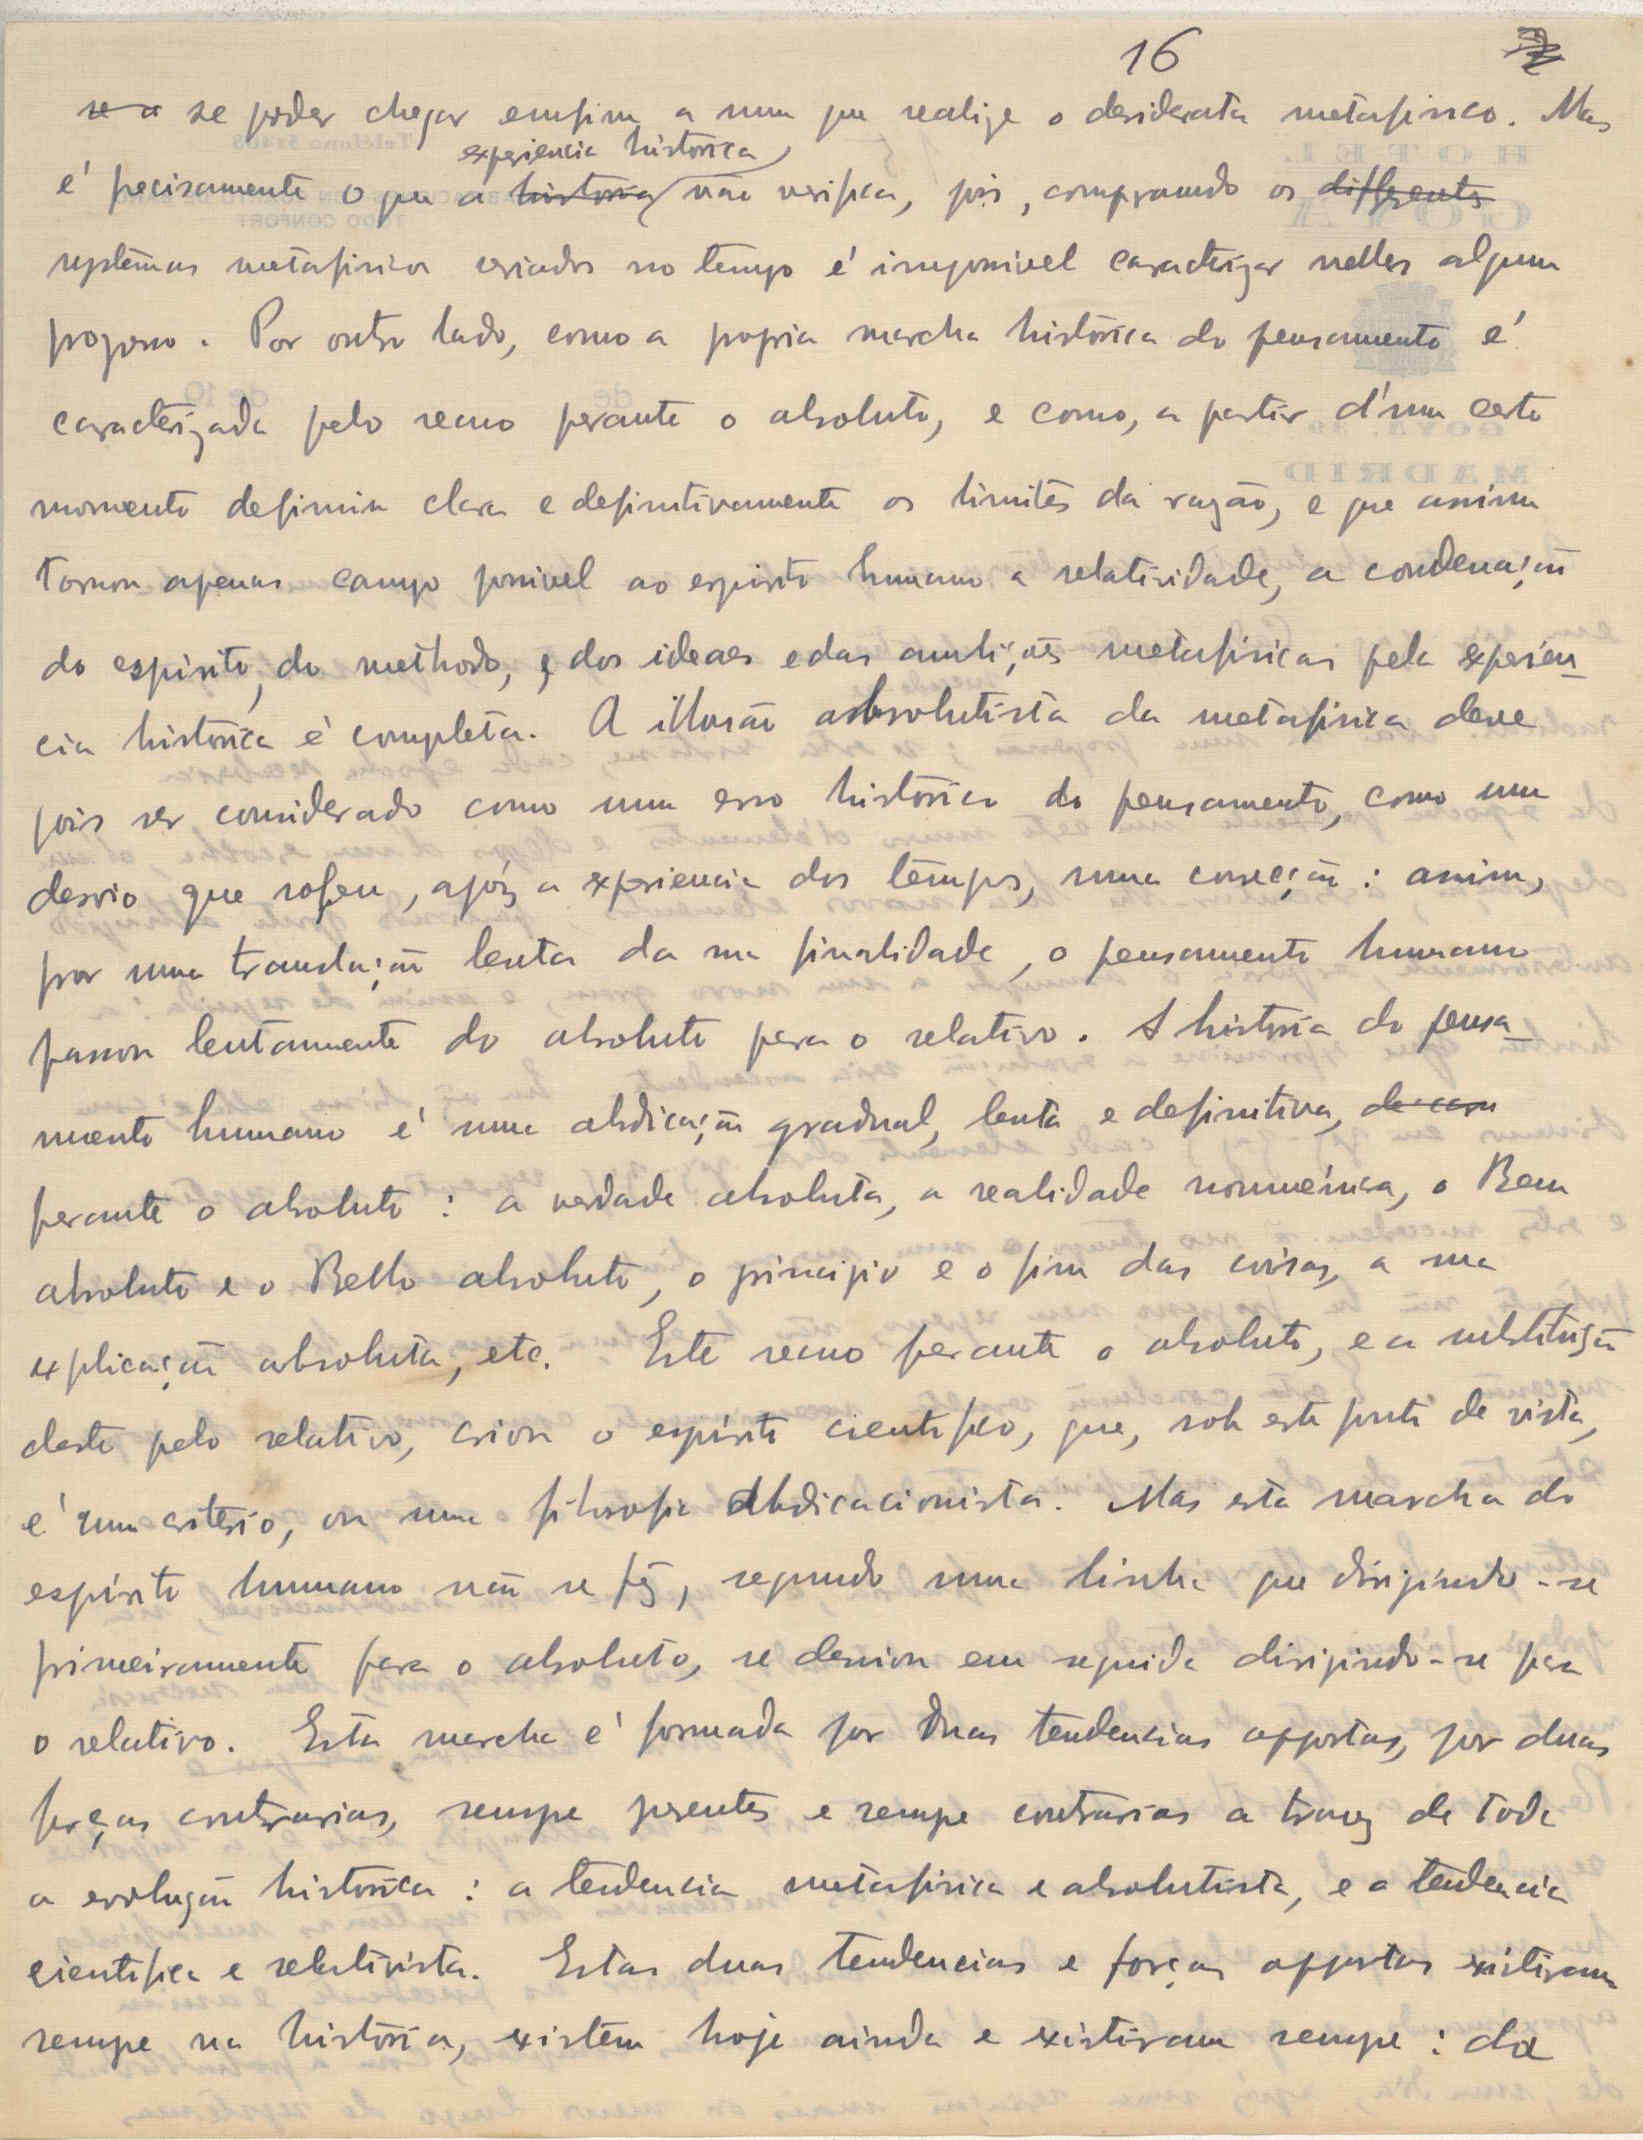 16
se a se poder chegar emfim a um que realize o desiderata metafisico. Mas
experiencia historica
é precisamente o que a historia não verifica, pois, comprando os differentes
systemas metafisicos criados no tempo é impossivel caracterizar nelles algum
progresso. Por outro lado, como a propria marcha histórica do pensamento é
caracterizada pelo recuo perante o absoluto, e como, a partir d'um certo
momento definiu clara e definitivamente os limites da razão, e que assim
tornou apenas campo possivel ao espirito humano a relatividade, a condenação
do espirito, do methodo, e dos ideaes e das ambições metafisicas pela experien-
cia histórica é completa. A illusão absolutista da metafisica deve
pois ser considerado como um erro histórico do pensamento, como um
desvio que sofreu, após a experiencia dos tempos, uma correcção: assim,
por uma translação lenta da sua finalidade, o pensamento humano
passou lentamente do absoluto para o relativo. A historia do pensa-
mento humano é uma abdicação gradual, lenta e definitiva,
perante o absoluto: a verdade absoluta, a realidade noumenica, o Bem
absoluto e o Bello absoluto, o principio e o fim das coisas, a sua
explicação absoluta, etc. Este recuo perante o absoluto, e a substituição
deste pelo relativo, criou o espirito cientifico, que, sob este ponto de vista,
é um criterio, ou uma filosofia abdicacionista. Mas esta marcha do
espirito humano não se fez, segundo uma linha que dirigindo-se
primeiramente para o absoluto, se desviou em seguida dirigindo-se para
o relativo. Esta marcha é formada por duas tendencias oppostas, por duas
forças contrarias, sempre presentes e sempre contrarias a travez de toda
a evolução histórica: a tendencia metafisica e absolutista, e a tendencia
cientifica e relativista. Estas duas tendencias e forças oppostas existiram
sempre na história, existem hoje ainda e existiram sempre: da